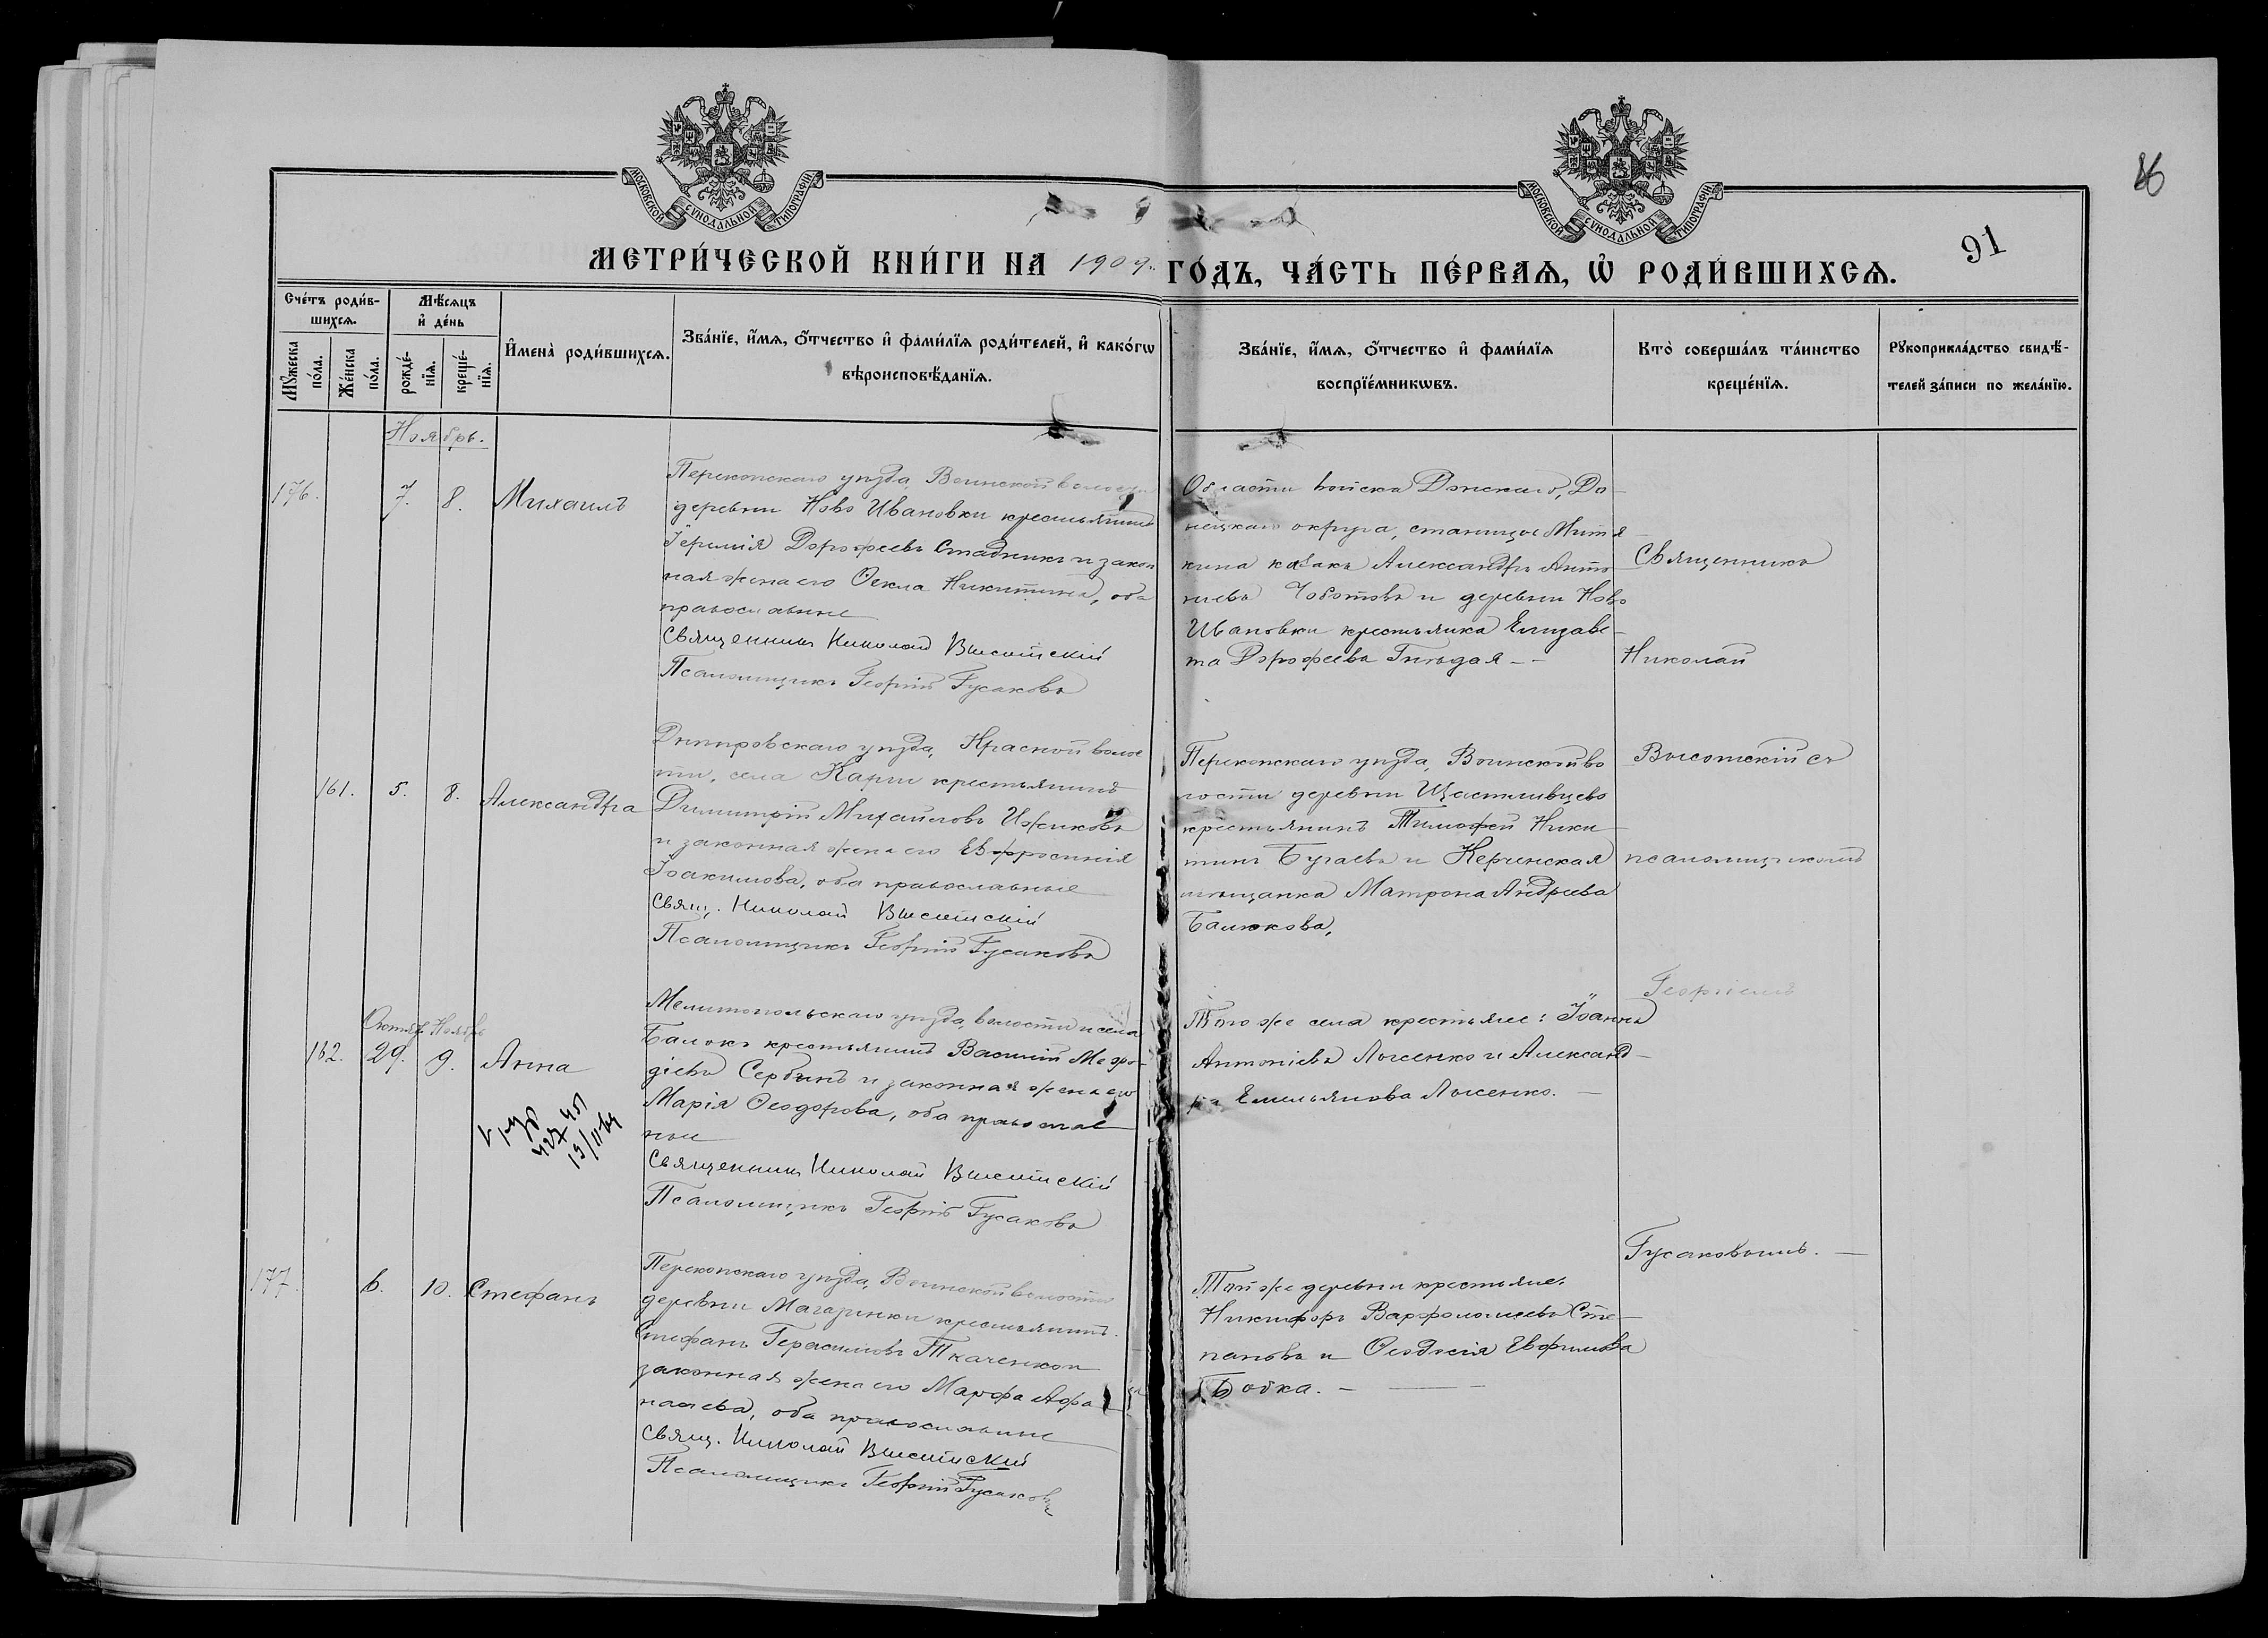 МОСКОВСКОЙ СУНОДАЛЬНОЙ ТИПОГРАФІИ
МОСКОВСКОЙ СУНОДАЛЬНОЙ ТИПОГРАФІИ
86
91
МЕТРИ́ЧЕСКОЙ КНИ́ГИ НА 1909 г. ГО́ДЪ, ЧА́СТЬ ПЕ́РВАѦ, Ѽ РОДИ́ВШИХСѦ.
Сче́тъ роди́в-
шихсѧ.
Мꙋ́жеска
по́ла.
Же́нска
по́ла.
Мѣ́сѧцъ
и҆ де́нь
рожде́-
нїѧ.
креще́-
нїѧ.
И҆мена̀ роди́вшихсѧ.
Зва́нїе, и҆́мѧ, ѻ҆́тчество и҆ фами́лїѧ роди́телей, и҆ како́гѡ
вѣроисповѣ́данїѧ.
Зва́нїе, и҆́мѧ, ѻ҆́тчество и҆ фами́лїѧ
воспрїе́мникѡвъ.
Кто̀ соверша́лъ та́инство
креще́нїѧ.
Рꙋкоприкла́дство свидѣ́-
телей за́писи по жела́нїю.
Ноябрь.
176.
7.
8.
Михаилъ
Перекопскаго уѣзда, Воинской волости
деревни Ново Ивановки крестьянинъ
Іеремія Дорофеевъ Стадникъ и закон
ная жена его Ѳекла Никитина, оба
православные
Священникъ Николай Высотскій
Псаломщикъ Георгій Гусаковъ
Области войска Донскаго, До-
нецкаго округа, станицы Митя-
кина казакъ Александръ Анто-
ніевъ Чоботовъ и деревни Ново
Ивановки крестьянка Елизаве-
та Дорофеева Гнѣдая
Священникъ
Николай
161.
5.
8.
Александра
Днѣпровскаго уѣзда, Красной волос
ти, села Карги крестьянинъ
Димитрій Михайловъ Ижиковъ
и законная жена его Евфросинія
Іоакимова, оба православные
Свящ. Николай Высотскій
Псаломщикъ Георгій Гусаковъ
Перекопскаго уѣзда, Воинской во
лости деревни Щастливцево
крестьянинъ Тимофей Ники-
тинъ Бугаевъ и Керчинская
мѣщанка Матрона Андреева
Балюкова,
Высотскій съ
псаломщикомъ
Октяб. Ноябрь
162.
29.
9.
Анна
Мелитопольскаго уѣзда, волости и села
Балокъ крестьянинъ Василій Меѳо-
діевъ Сербинъ и законная жена его
Марія Ѳеодорова, оба православ
ные
Священникъ Николай Высотскій
Псаломщикъ Георгій Гусаковъ
Того же села крестьяне: Іоаннъ
Антоніевъ Лысенко и Александ-
ра Емельянова Лысенко.
Георгіемъ
Гусаковымъ.
177.
6.
10.
Стефанъ
Перекопскаго уѣзда, Воинской волости
деревни Магазинки крестьянинъ
Стефанъ Герасимовъ Ткаченко и
законная жена его Марфа Афа-
насіева, оба православные
Свящ. Николай Высотскій
Псаломщикъ Георгій Гусаковъ
Той же деревни крестьяне:
Никифоръ Варфоломеевъ Сте-
пановъ и Ѳеодосія Евфимова
Бойка.